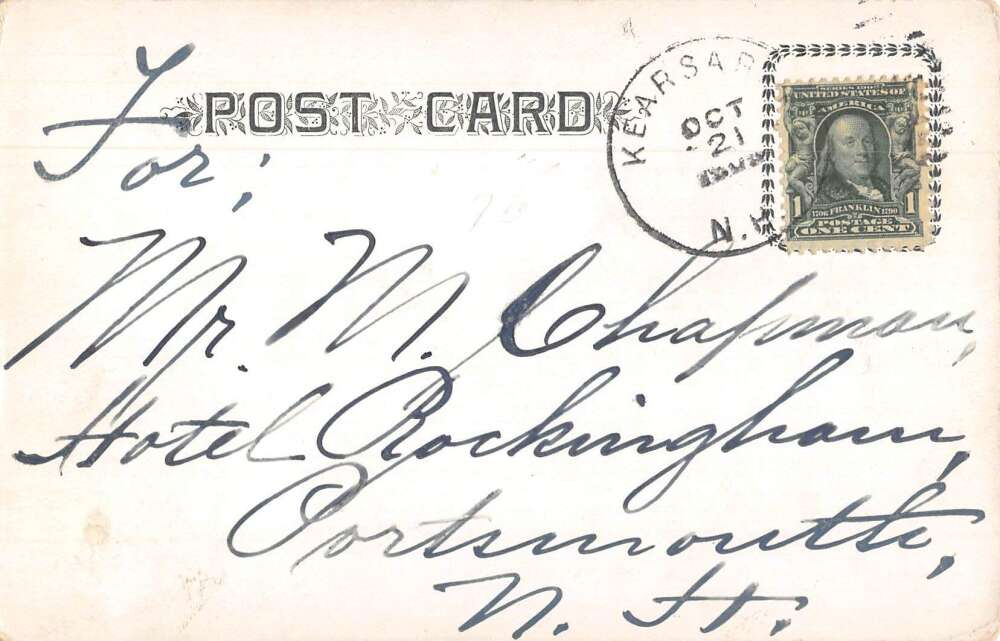 For:
POST CARD
KEARSAR
OCT
21
N.H
SERIES 1902
UNITED STATES OF
AMERICA
1706 FRANKLIN 1790
1 POSTAGE 1
ONE CENT
Mr. M. Chapman,
Hotel Rockingham,
Portsmouth,
N. H.